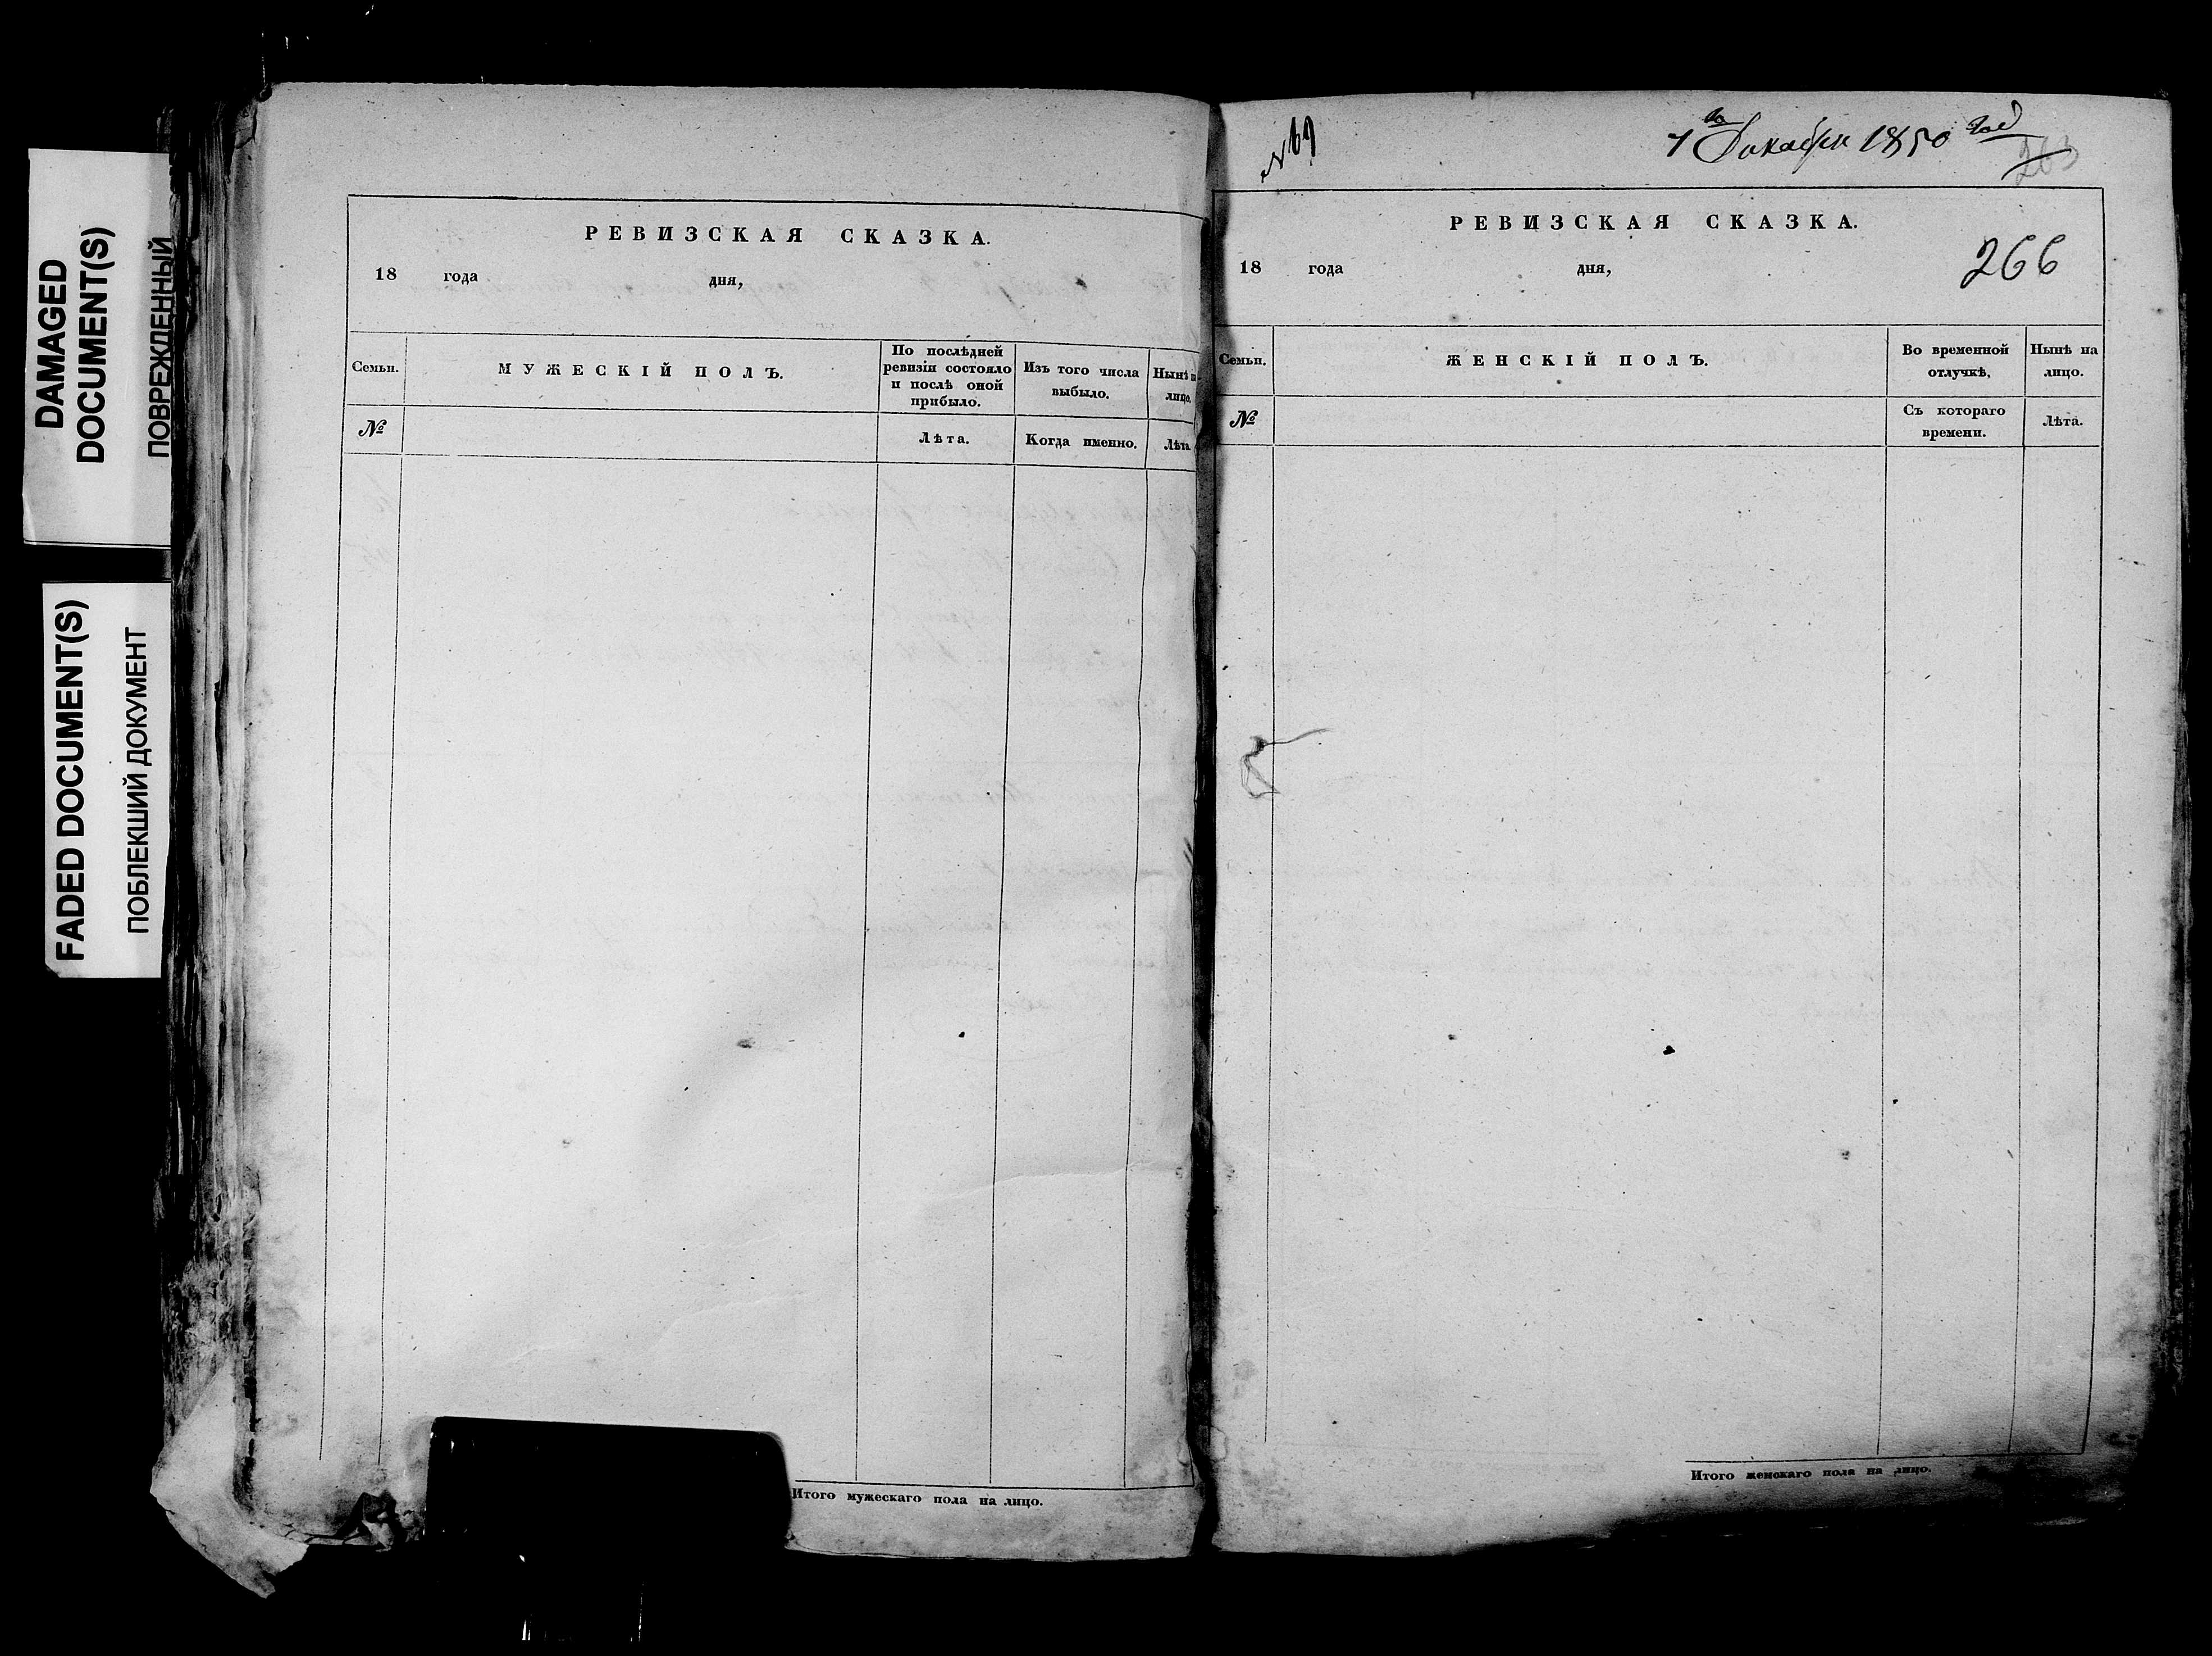 DAMAGED
DOCUMENT(S)
ПОВРЕЖДЕННЫЙ
FADED DOCUMENT(S)
ПОБЛЕКШИЙ ДОКУМЕНТ
РЕВИЗСКАЯ СКАЗКА.
18 года дня,
Семьи. МУЖЕСКІЙ ПОЛЪ. По послѣдней ревизіи состояло и послѣ оной прибыло. Изъ того числа выбыло. Нынѣ на лицо.
№ Лѣта. Когда именно. Лѣта.
Итого мужескаго пола на лицо.
№ 69
7го Декабря 1850 года
263
РЕВИЗСКАЯ СКАЗКА.
18 года дня,
266
Семьи. ЖЕНСКІЙ ПОЛЪ. Во временной отлучкѣ. Нынѣ на лицо.
№ Съ котораго времени. Лѣта.
Итого женскаго пола на лицо.